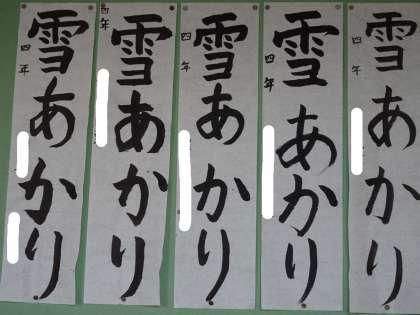 雪あかり
四年
雪あかり
四年
雪あかり
四年
雪あかり
四年
雪あかり
四年